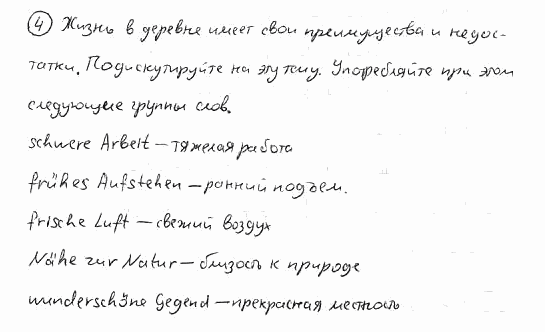 ④ Жизнь в деревне имеет свои преимущества и недос-
татки. Подискутируйте на эту тему. Употребляйте при этом
следующие группы слов.
schwere Arbeit – тяжелая работа
frühes Aufstehen – ранний подъем.
frische Luft – свежий воздух
Nähe zur Natur – близость к природе
wunderschöne Gegend – прекрасная местность